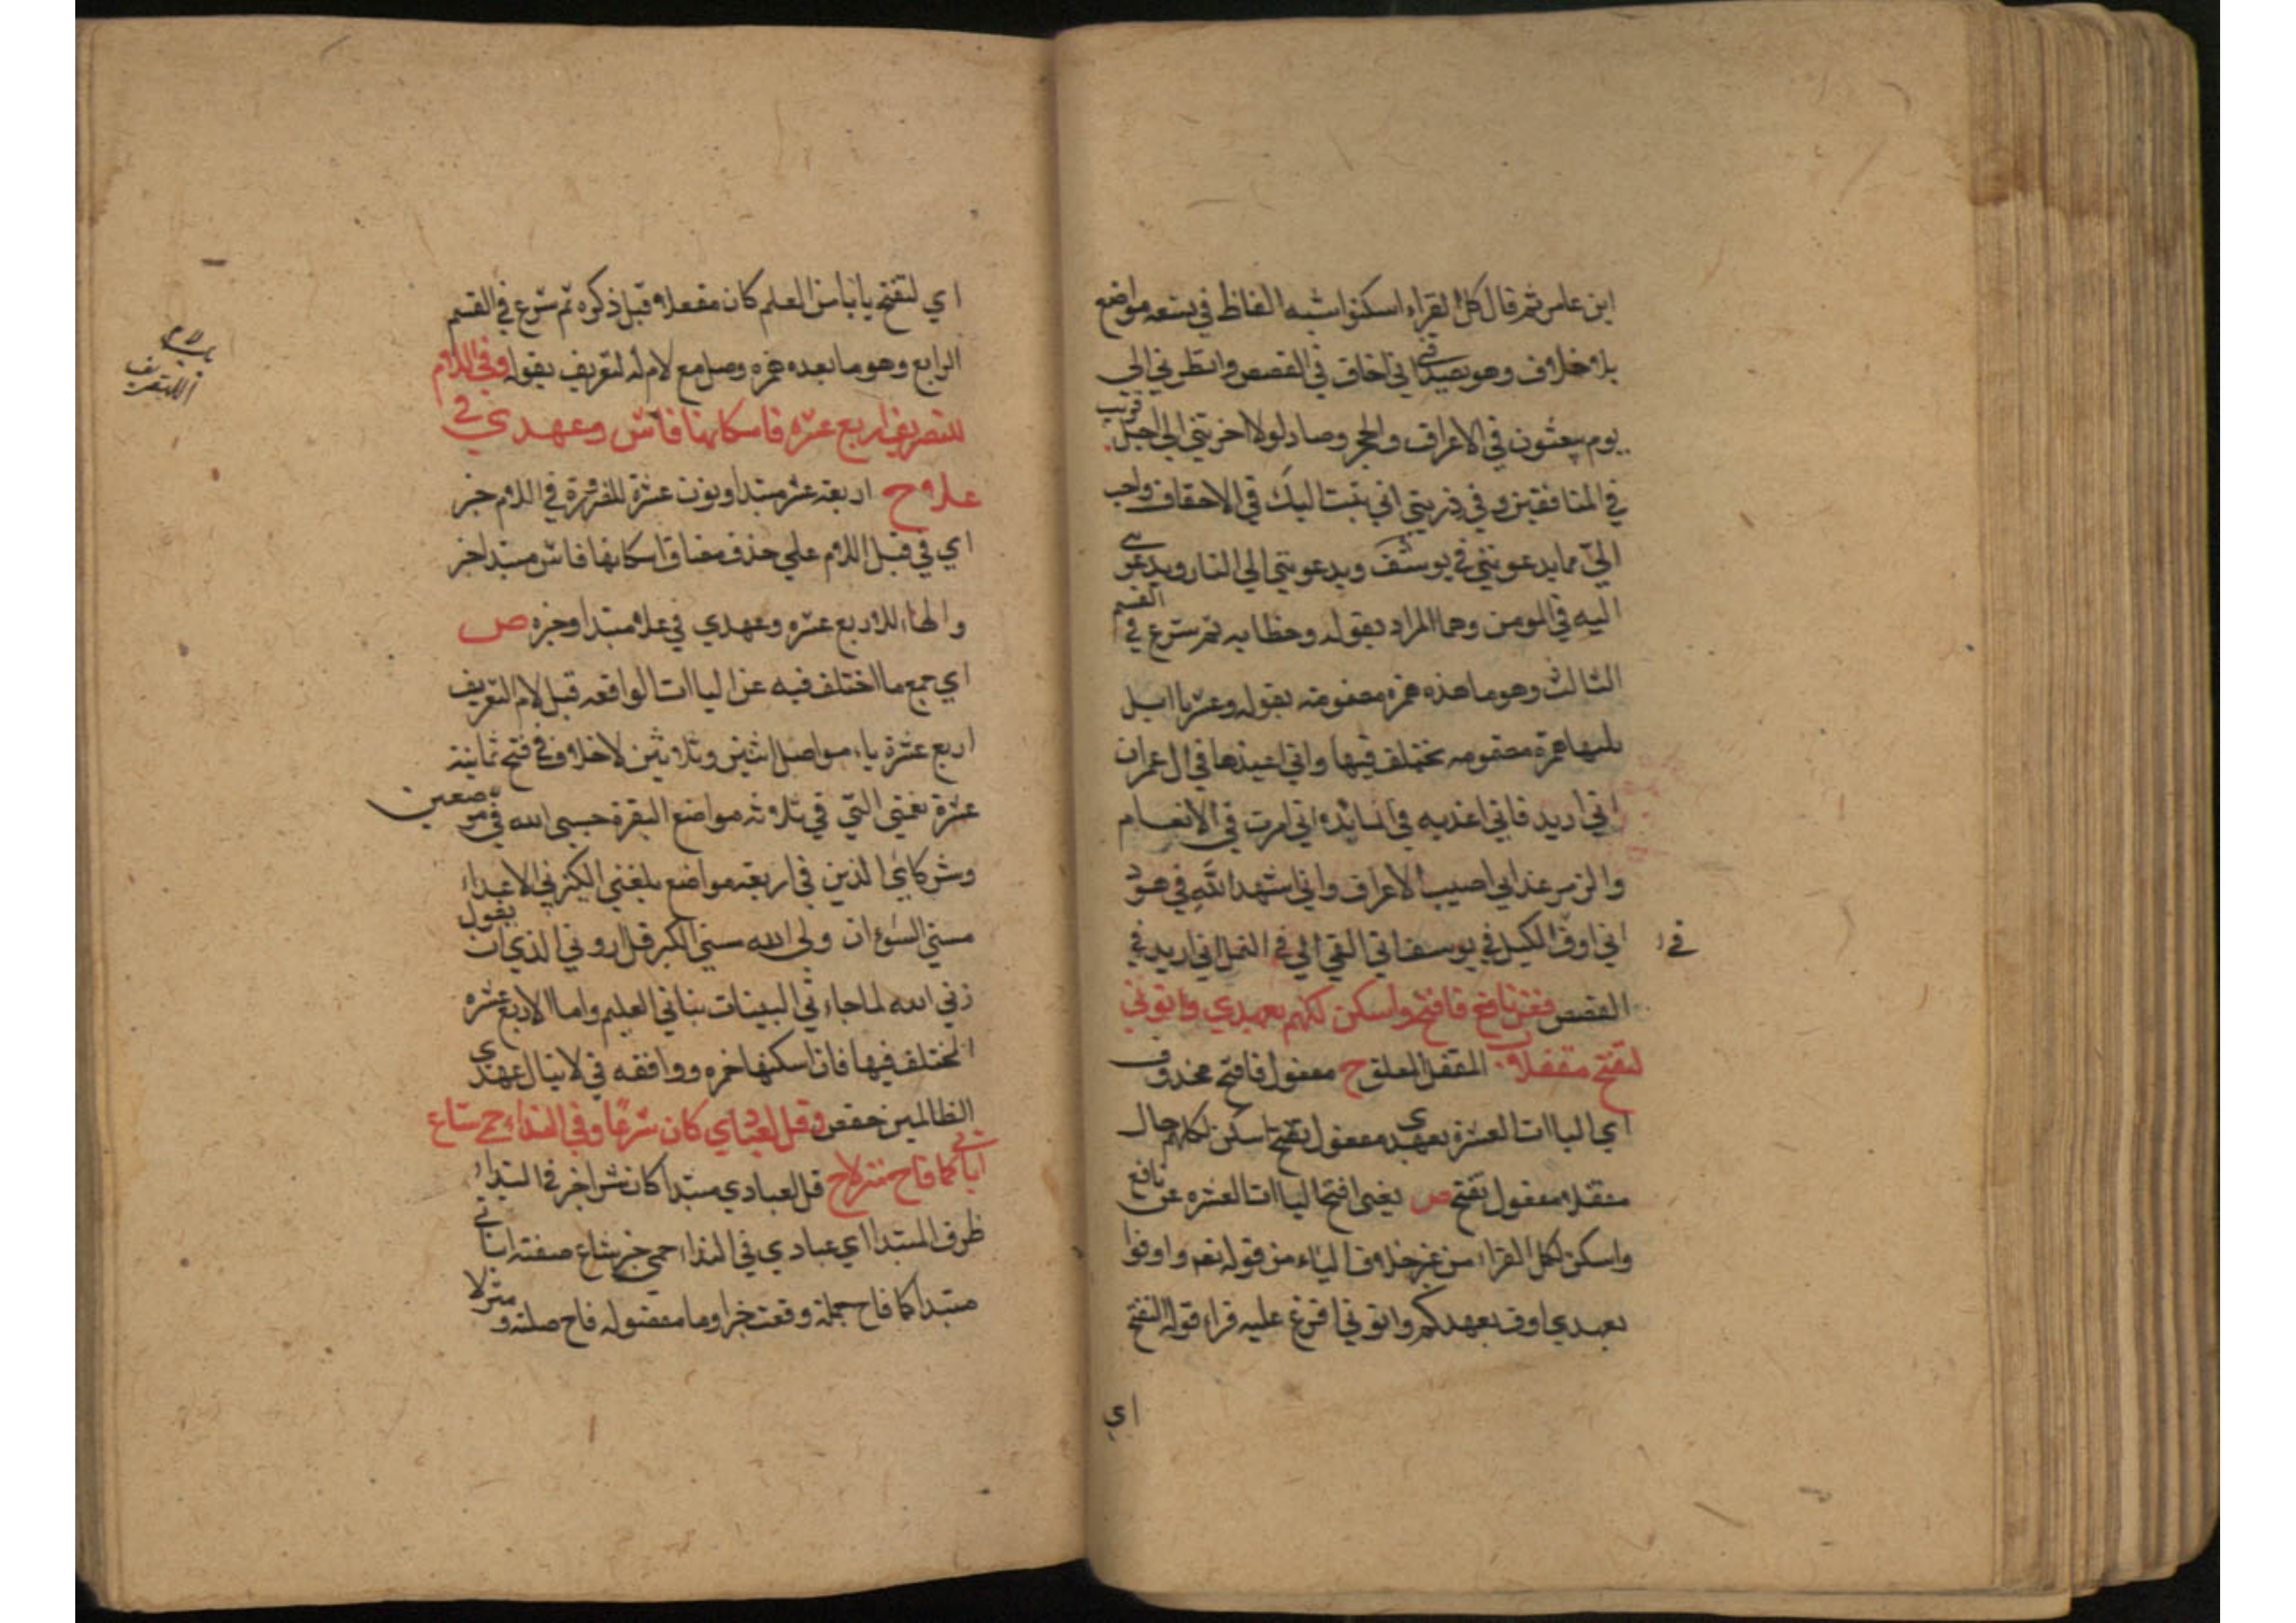 ابن عامر ثم قال كل القراء اسكنوا شبه الفاظ في تسعه مواضع
بلا خلاف وهو يصدقني اني اخاف في القصص وانظرني الي
يوم يبعثون في الاعراف والحجر وصاد لولا اخرتني الي اجل قريب
في المنافقين وفي ذريتي اني تبت اليك في الاحقاف واحب
الي مما يدعونني في يوسف ويدعونني الي النار ويدعونني
اليه في المومن وهما المراد بقوله وخطابه ثم شرع في القسم
الثالث وهو ما هذه همزه مضمومه بقوله وعشريا ايل
يليها همزة مضمومه تختلف فيها واني اعيذها في ال عمران
اني اريد فاني اعذبه في المائده اني امرت في الانعام
والزمر عذابي اصيب الاعراف واني اشهد الله في هود
اني اوف الكيل في يوسف اني القي الي في النمل اني اريد في
القصص فعن نافع فافتح واسكن لكلهم بعهدي واتوني
لتفتح مقفلا المقفل المغلق ح مفعول فافتح محذوف
اي الياات العشرة بعهدي مفعول تفتح اسكن لكلهم حال
مقفلا مفعول تفتح ص يعني افتح الياات العشره عن نافع
واسكن لكل القراء من غير خلاف الياء من قوله تعم واوفوا
بعهدي اوف بعهدكم واتوني افرغ عليه قراء قوله لتفتح
اي
اي لتفتح بابا من العلم كان مقفلا قبل ذكره ثم شرع في القسم
الرابع وهو ما بعده همزه وصل مع لام لتعريف بقوله وفي اللام
للتعريف اربع عشره فاسكانها فاش وعهدي في
علا ح اربعه عشر مبتدا ونون عشرة للضرورة في اللام خبر
اي في قبل اللام علي حذف مضاف اسكانها فاش مبتدا خبر
والها للاربع عشره وعهدي في علا مبتدا وخبره ص
اي جمع ما اختلف فيه عن الياات الواقعه قبل لام التعريف
اربع عشرة ياء مواصل اثنين وثلاثين لاخلاف في فتح ثمانية
عشرة نعمتي التي في ثلاثه مواضع البقرة حسبي الله في موضعين
وشركائي الذين في اربعه مواضع بلغني الكبر في الاعداء
مسني السوء ان ولي الله مسني الكبر قل اروني الذي ان يقول
ربي الله لما جاءني البينات نباني العليم واما الاربع عشره
المختلف فيها فان اسكنها حمزه ووافقه في لاينال عهدي
الظالمين حفص وقل لعبادي كان شرعا وفي الندا حمي شاع
اياتي كما فاح منزلا ح قل لعبادي مبتدا كان شرا خبر في الندا
ظرف المبتدا اي عبادي في الندا حمي خبر شاع صفته اياتي
مبتدا كما فاح جملة وقعت خبر وما مفعوله فاح صلته و منزلا